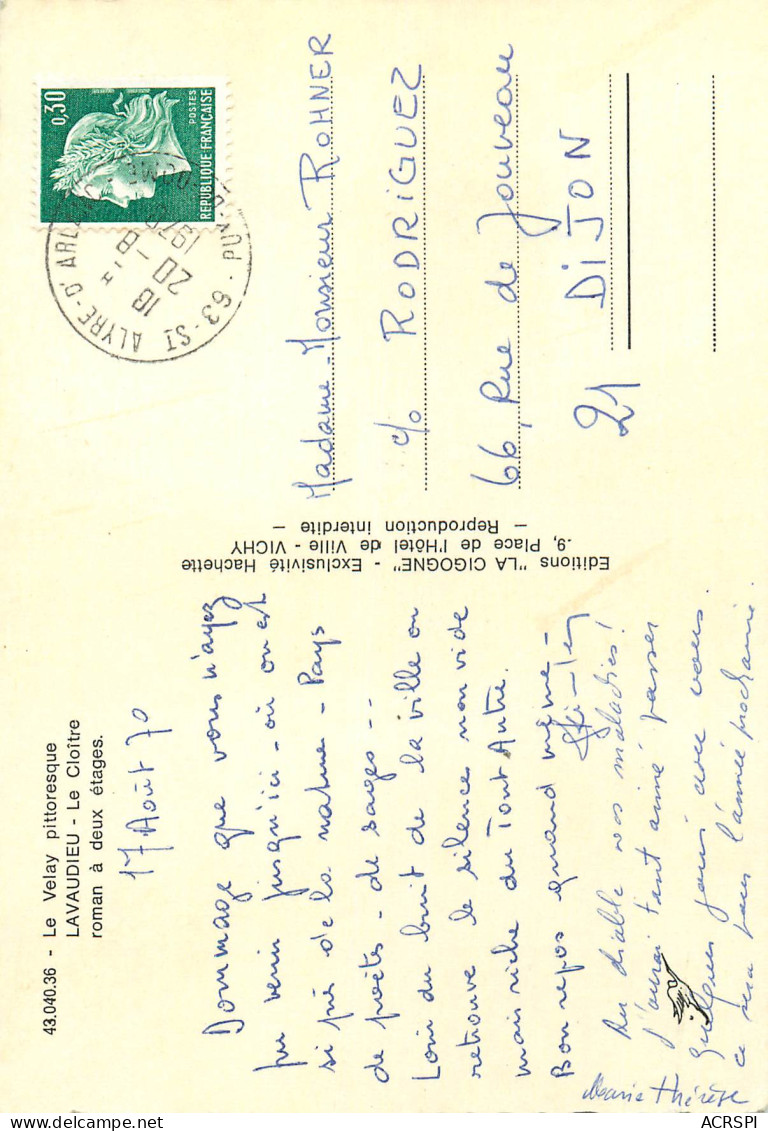 43.040.36 - Le Velay pittoresque
LAVAUDIEU - Le Cloître
roman à deux étages.
17 Août 70
Dommage que vous n'ayez
pu venir jusqu'ici - où on est
si près de la nature - Pays
de poètes - de sages --
Loin du bruit de la ville on
retrouve le silence non vide
mais riche du Tout Autre.
Bon repos quand même -
Au diable vos maladies!
J'aurai tant aimé passer
quelques jours avec vous.
ce sera pour l'année prochaine.
Marie Thérèse
Editions "LA CIGOGNE" - Exclusivité Hachette
9, Place de l'Hôtel de Ville - VICHY
- Reproduction interdite -
0,30
POSTES
REPUBLIQUE FRANÇAISE
63 - ST ALYRE-D'ARLANC
PUY-DE-DOME
18 H
20-8
1970
Madame - Monsieur ROHNER
c/o RODRIGUEZ
66, Rue de Jouveau
DIJON
21
ACRSPI